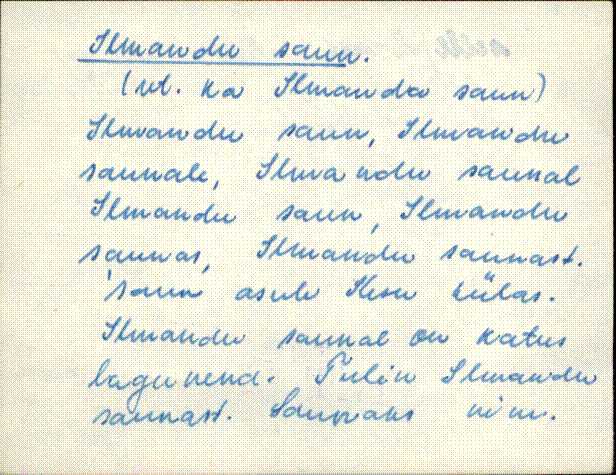 Ilmandu saun.
(vt. ka Ilmanda saun)
Ilmandu saun, Ilmandu
saunale, Ilmandu saunal
Ilmandu saun, Ilmandu
saunas, Ilmandu saunast.
Saun asub Kesu külas.
Ilmandu saunal on katus
lagunend. Tulin Ilmandu
saunast. nimi.